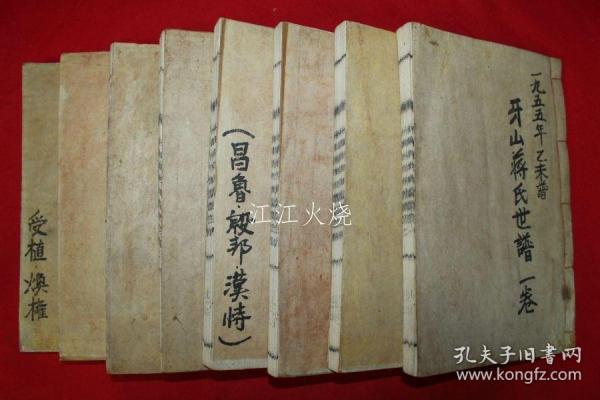 一九五五年 乙未譜
牙山蔣氏世譜 一卷
(昌魯·殷邦·漢特)
受植 煥權
江江火烧
孔夫子旧书网
www.kongfz.com